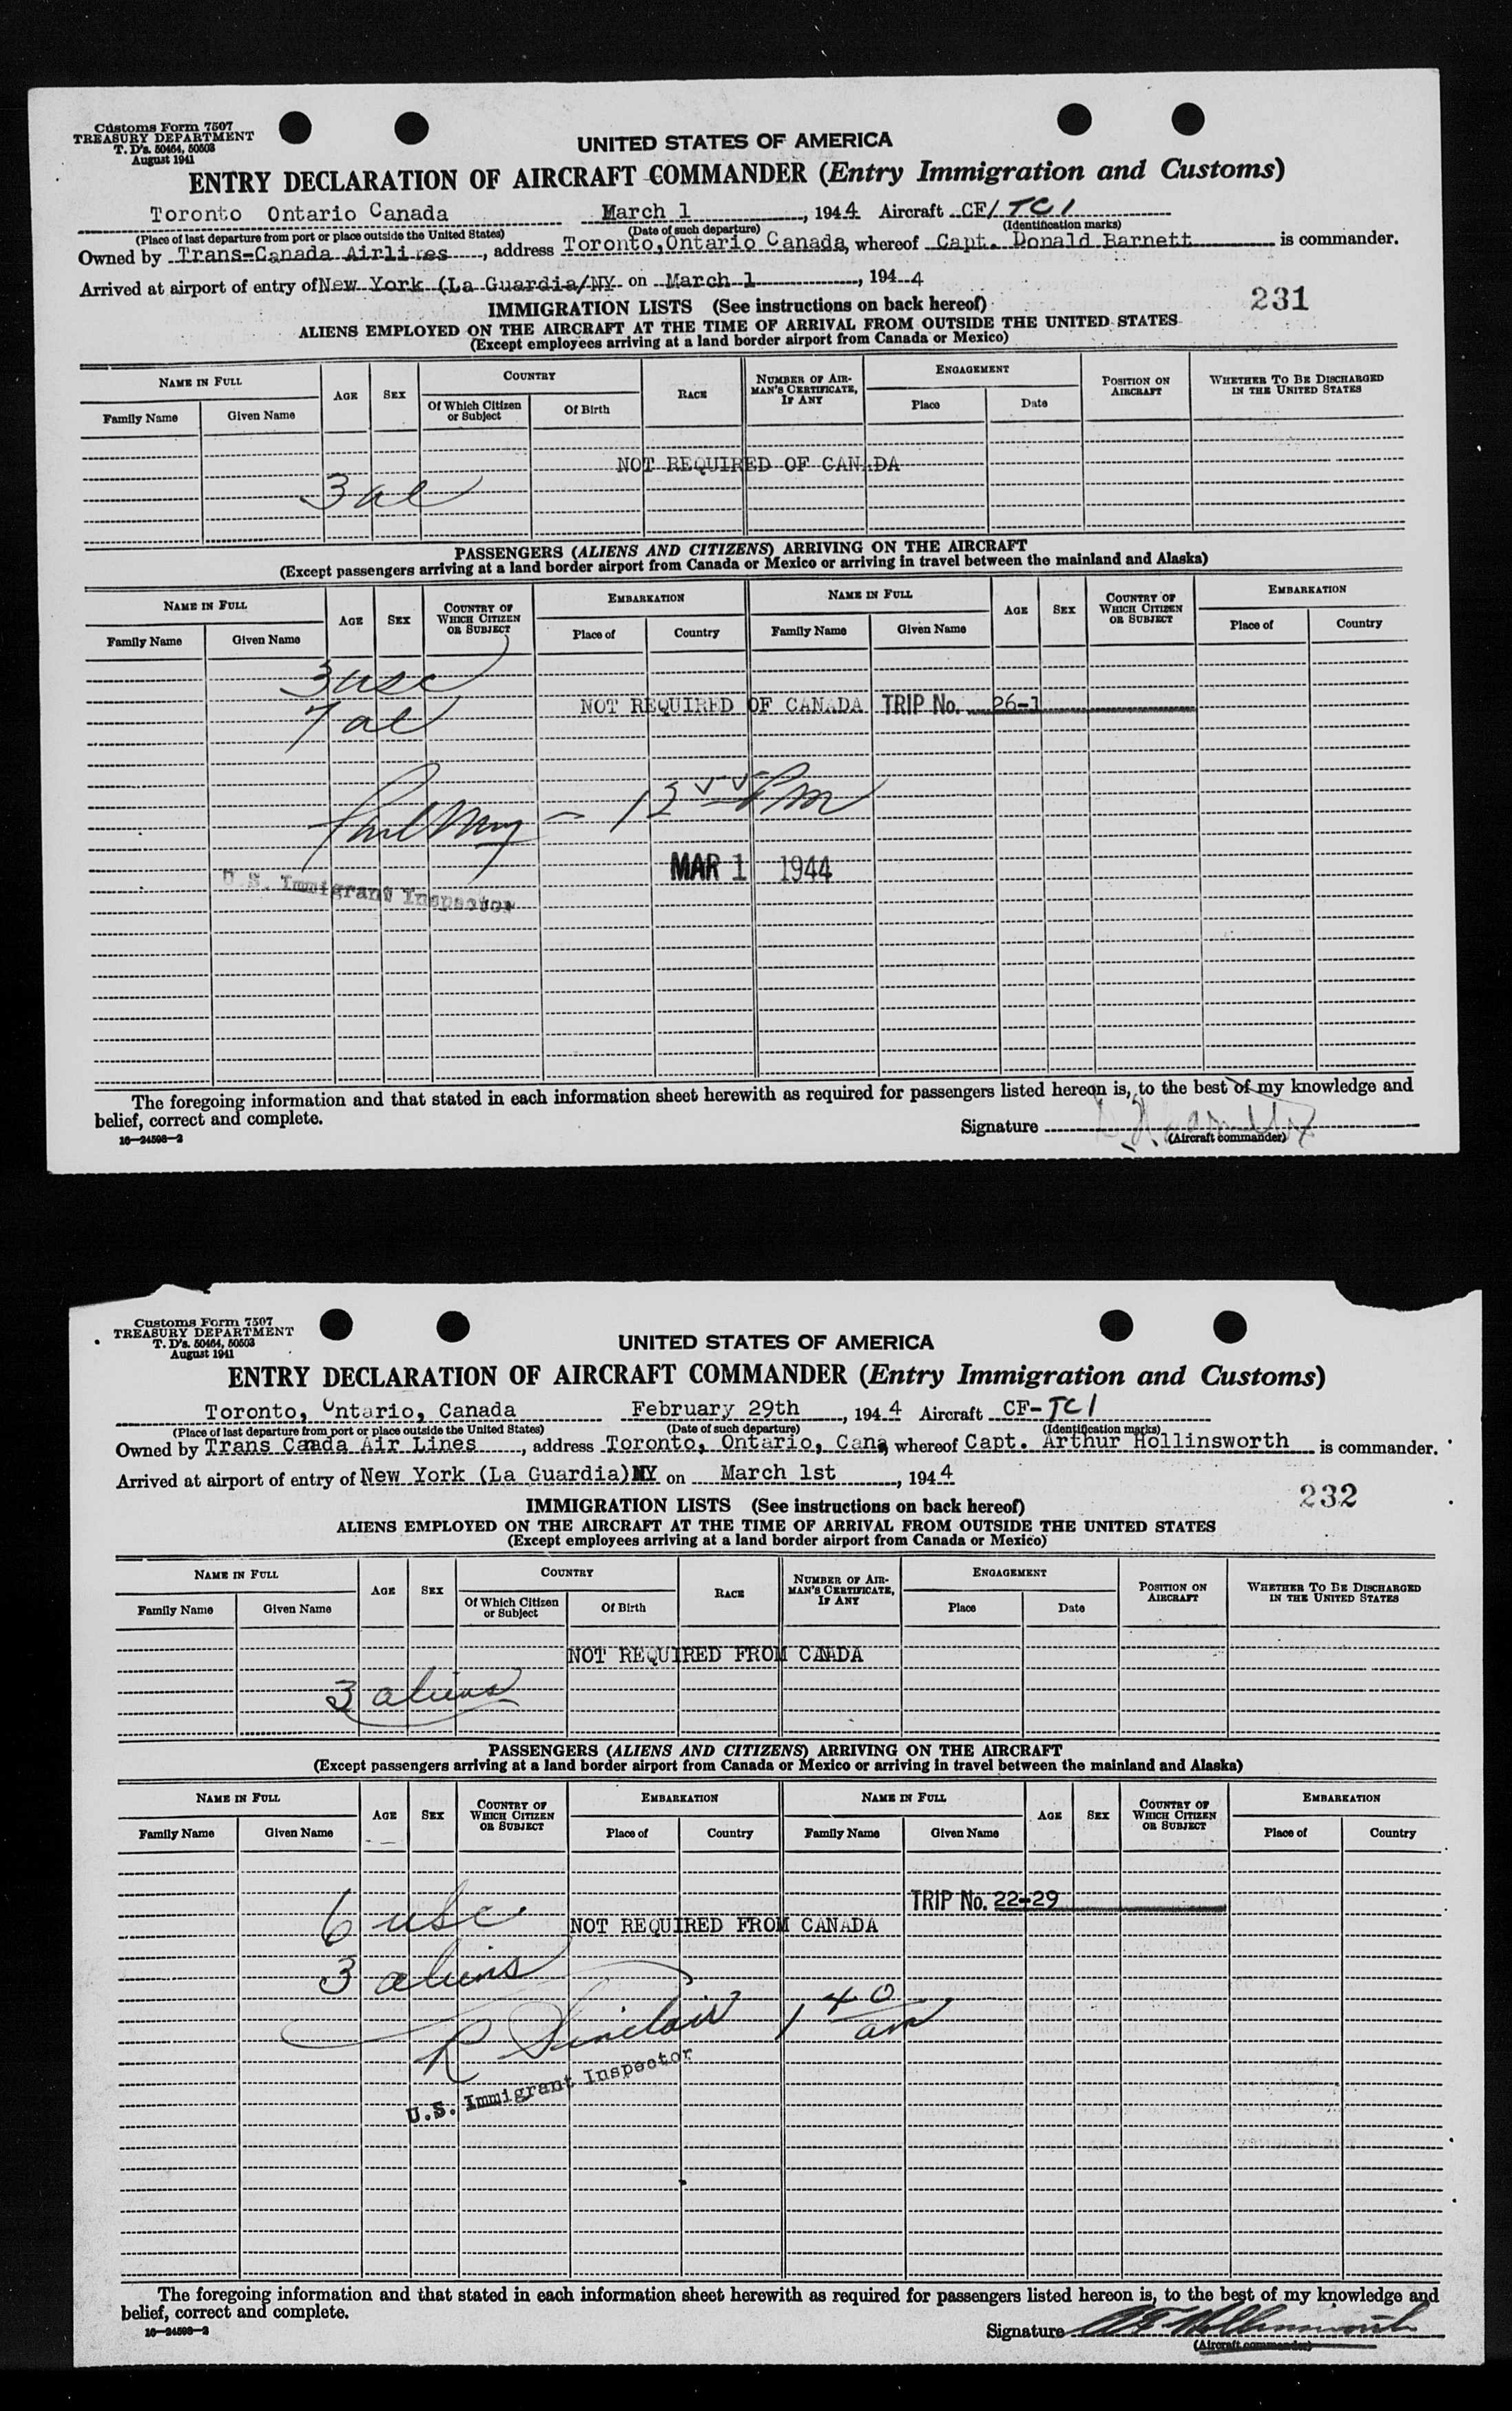 Customs Form 7507
TREASURY DEPARTMENT
T. D's. 50464, 50503
August 1941
UNITED STATES OF AMERICA
ENTRY DECLARATION OF AIRCRAFT COMMANDER (Entry Immigration and Customs)
Toronto Ontario Canada March 1, 1944 Aircraft CF/TCI
(Place of last departure from port or place outside the United States) (Date of such departure) (Identification marks)
Owned by Trans-Canada Airlines, address Toronto, Ontario Canada, whereof Capt. Donald Barnett is commander.
Arrived at airport of entry of New York (La Guardia/NY on March 1, 1944
231
IMMIGRATION LISTS (See instructions on back hereof)
ALIENS EMPLOYED ON THE AIRCRAFT AT THE TIME OF ARRIVAL FROM OUTSIDE THE UNITED STATES
(Except employees arriving at a land border airport from Canada or Mexico)
NAME IN FULL AGE SEX COUNTRY RACE NUMBER OF AIRMAN'S CERTIFICATE, IF ANY ENGAGEMENT POSITION ON AIRCRAFT WHETHER TO BE DISCHARGED IN THE UNITED STATES
Family Name Given Name Of Which Citizen or Subject Of Birth Place Date
NOT REQUIRED OF CANADA
3 al
PASSENGERS (ALIENS AND CITIZENS) ARRIVING ON THE AIRCRAFT
(Except passengers arriving at a land border airport from Canada or Mexico or arriving in travel between the mainland and Alaska)
NAME IN FULL AGE SEX COUNTRY OF WHICH CITIZEN OR SUBJECT EMBARKATION NAME IN FULL AGE SEX COUNTRY OF WHICH CITIZEN OR SUBJECT EMBARKATION
Family Name Given Name Place of Country Family Name Given Name Place of Country
3 usc
NOT REQUIRED OF CANADA TRIP No. 26-1
7 al
Pm
MAR 1 1944
U.S. Immigrant Inspector
The foregoing information and that stated in each information sheet herewith as required for passengers listed hereon is, to the best of my knowledge and
belief, correct and complete.
Signature
(Aircraft commander)
16—24598-2
Customs Form 7507
TREASURY DEPARTMENT
T. D's. 50464, 50503
August 1941
UNITED STATES OF AMERICA
ENTRY DECLARATION OF AIRCRAFT COMMANDER (Entry Immigration and Customs)
Toronto, Ontario, Canada February 29th, 1944 Aircraft CF-TCI
(Place of last departure from port or place outside the United States) (Date of such departure) (Identification marks)
Owned by Trans Canada Air Lines, address Toronto, Ontario, Cana whereof Capt. Arthur Hollinsworth is commander.
Arrived at airport of entry of New York (La Guardia)NY on March 1st, 1944
232
IMMIGRATION LISTS (See instructions on back hereof)
ALIENS EMPLOYED ON THE AIRCRAFT AT THE TIME OF ARRIVAL FROM OUTSIDE THE UNITED STATES
(Except employees arriving at a land border airport from Canada or Mexico)
NAME IN FULL AGE SEX COUNTRY RACE NUMBER OF AIRMAN'S CERTIFICATE, IF ANY ENGAGEMENT POSITION ON AIRCRAFT WHETHER TO BE DISCHARGED IN THE UNITED STATES
Family Name Given Name Of Which Citizen or Subject Of Birth Place Date
NOT REQUIRED FROM CANADA
3 aliens
PASSENGERS (ALIENS AND CITIZENS) ARRIVING ON THE AIRCRAFT
(Except passengers arriving at a land border airport from Canada or Mexico or arriving in travel between the mainland and Alaska)
NAME IN FULL AGE SEX COUNTRY OF WHICH CITIZEN OR SUBJECT EMBARKATION NAME IN FULL AGE SEX COUNTRY OF WHICH CITIZEN OR SUBJECT EMBARKATION
Family Name Given Name Place of Country Family Name Given Name Place of Country
TRIP No. 22-29
6 usc NOT REQUIRED FROM CANADA
3 aliens
R Sinclair 1 40 am
U.S. Immigrant Inspector
The foregoing information and that stated in each information sheet herewith as required for passengers listed hereon is, to the best of my knowledge and
belief, correct and complete.
Signature A E Hollinsworth
(Aircraft commander)
16—24598-2